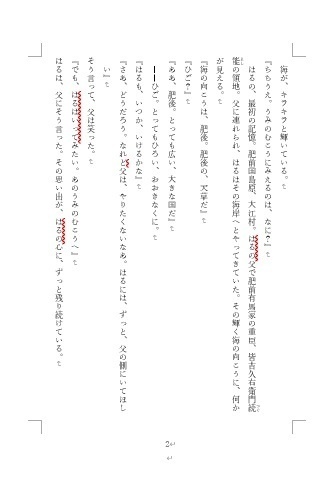 海が、キラキラと輝いている。
『ちちうえ。うみのむこうにみえるのは、なに？』
はるの、最初の記憶。肥前国島原、大江村。はるの父で肥前有馬家の重臣、皆吉久右衛門続
能の領地。父に連れられ、はるはその海岸へとやってきていた。その輝く海の向こうに、何か
が見える。
『海の向こうは、肥後。肥後の、天草だ』
『ひご？』
『ああ、肥後。とっても広い、大きな国だ』
――ひご。とってもひろい、おおきなくに。
『はるも、いつか、いけるかな』
『さあ、どうだろう。なれど父は、やりたくないなあ。はるには、ずっと、父の側にいてほし
い』
そう言って、父は笑った。
『でも、はるはいってみたい。あのうみのむこうへ』
はるは、父にそう言った。その思い出が、はるの心に、ずっと残り続けている。
2